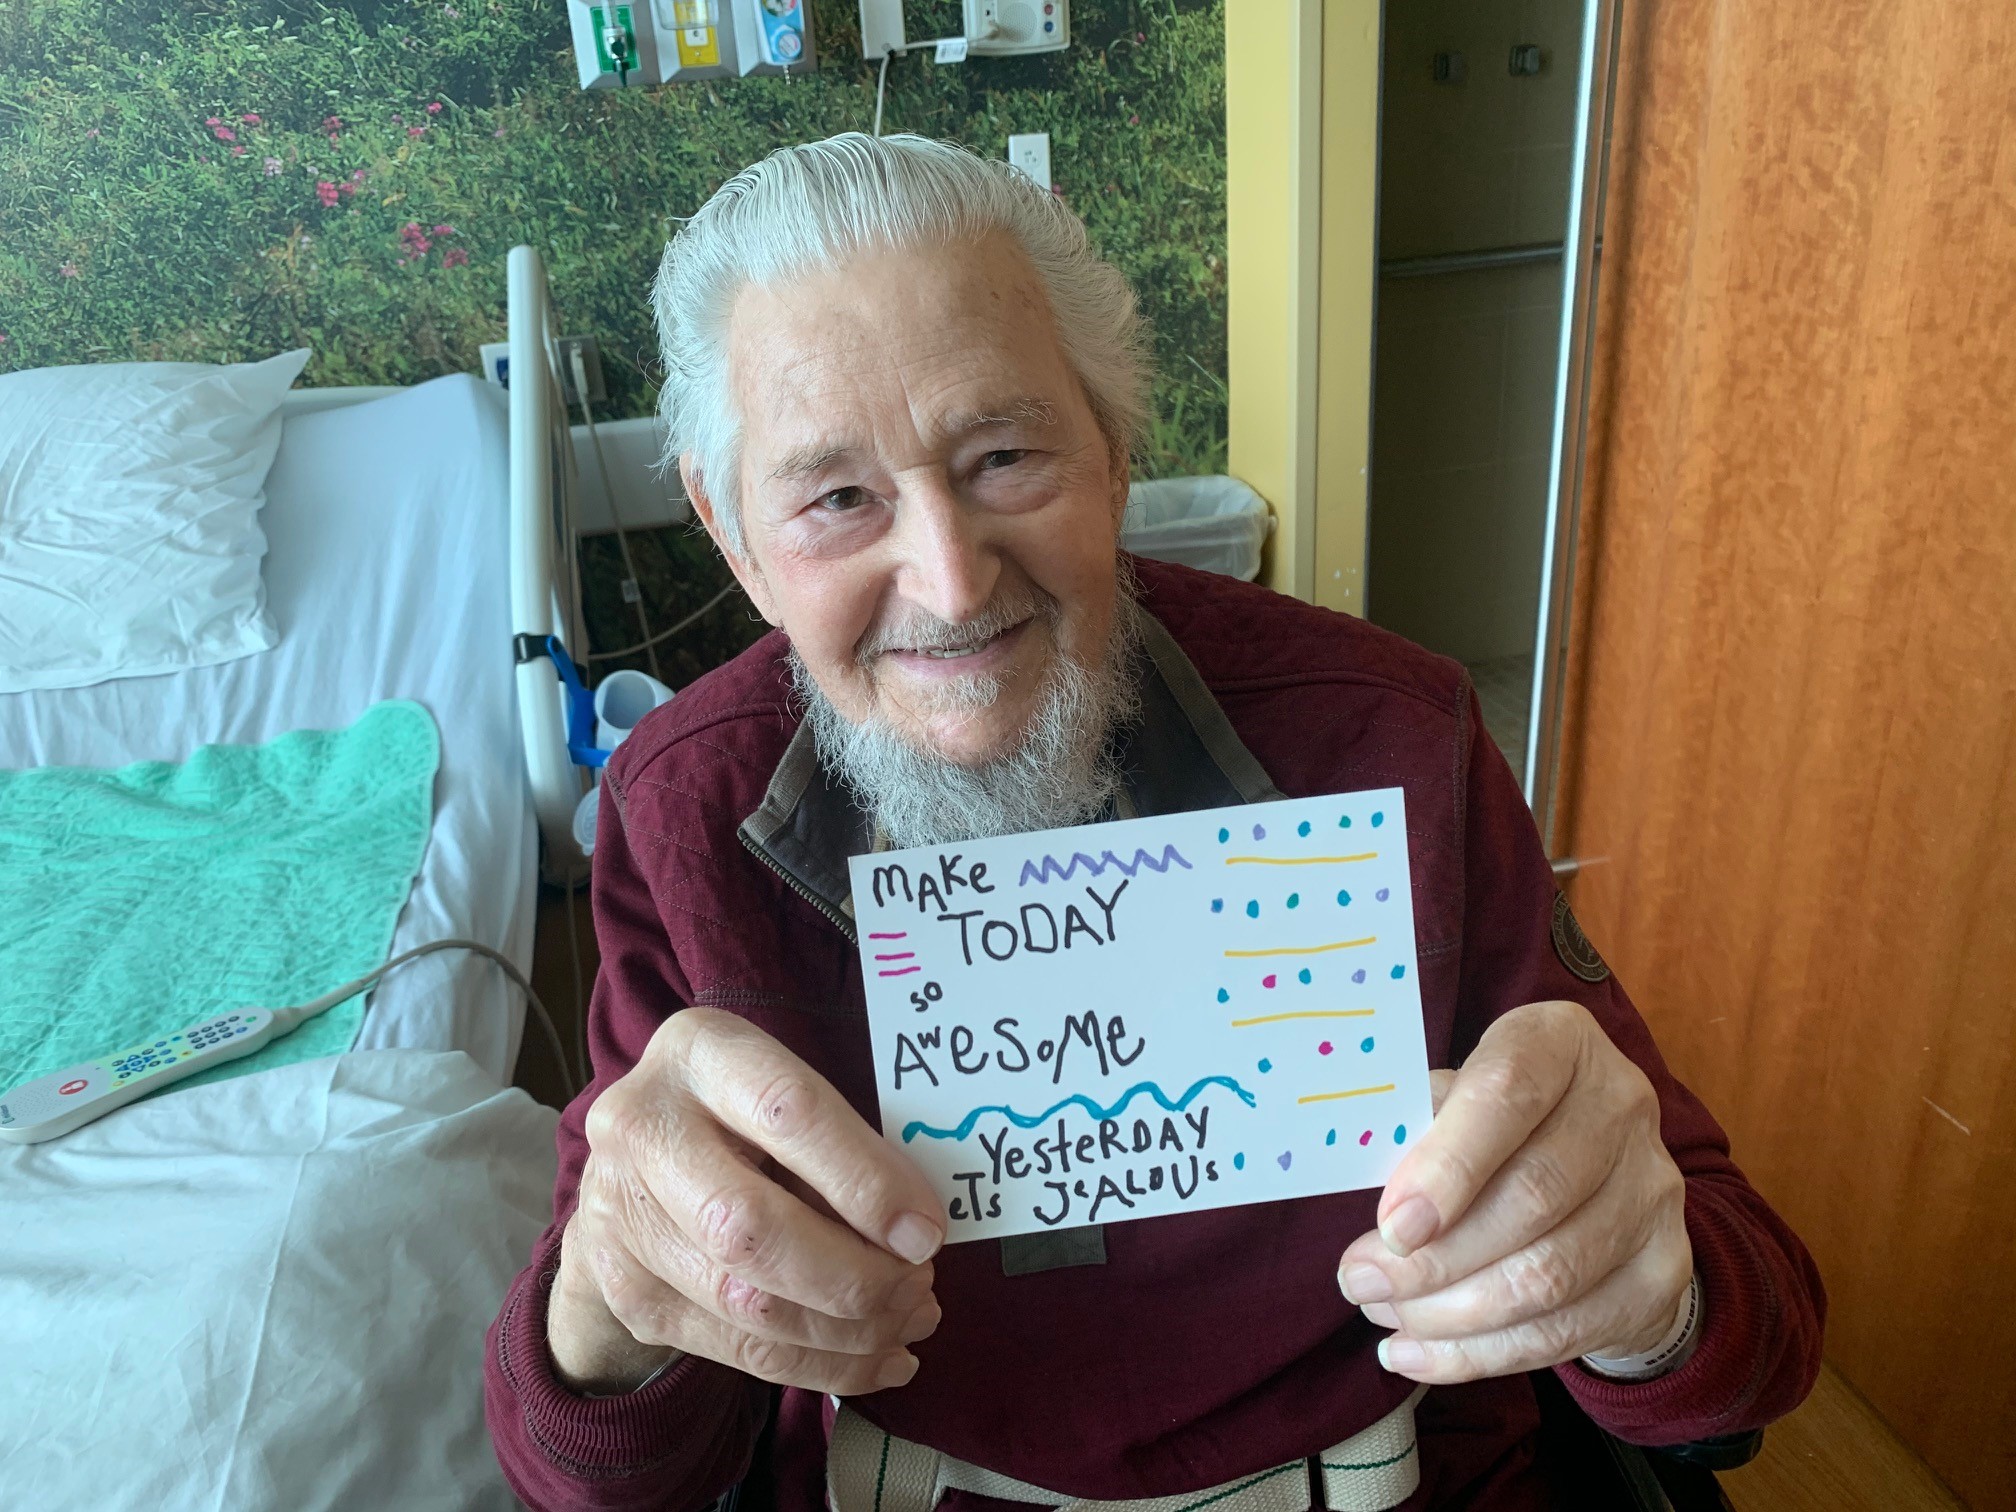 MAKe
TODAY
so
AwesoMe
YesteRDAY
eTs JeALOUs